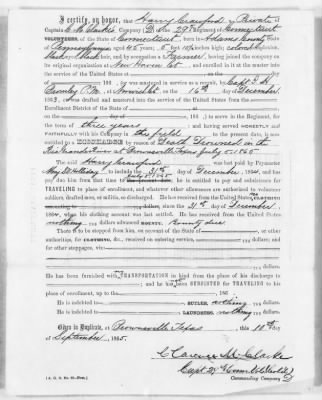 I certify, on honor, that Harry Crawford a Private
Captain Company (D) 29th Regiment of Connecticut
VOLUNTEERS, of the State of Connecticut born in Adams County State
of Pennsylvania aged 45 years; 5 feet inches high; colored complexion,
black eyes, black hair, and by occupation a having joined the company on
its original organization at New Haven Ct and enrolled in it to muster into
the service of the United States at on the day
of 186 was mustered in service as a recruit, by Capt
at on the 16th day of December
1863, or was drafted and mustered into the service of the United States from the
Enrollment District of the State of
on the day of 186 , to serve in the Regiment, for
the term of three years and having served HONESTLY and
FAITHFULLY with his Company in the field to the present date, is now
entitled to a DISCHARGE by reason of Death Drowned in the
Rio Grande River at Brownsville Texas July 5. 1865
The said Harry Crawford was last paid by Paymaster
to include the 31st day of December, 1864, and has
pay due him from that time to the present date; he is entitled to pay and subsistence for
TRAVELING to place of enrollment, and whatever other allowances are authorized to volunteer
soldiers, drafted men, or militia, so discharged. He has received from the United States CLOTHING
dollars, since the 31st day of December
1864, when his clothing account was last settled. He has received from the United States
nothing dollars advanced BOUNTY. Bounty due
There is to be stopped from him, on account of the State of or other
authorities, for CLOTHING, &c., received on entering service, dollars; and
for other stoppages, viz:
He has been furnished with TRANSPORTATION in kind from the place of his discharge to
and he has been SUBSISTED for TRAVELING to his
place of enrollment, up to the 186
He is indebted to BUTLER, nothing dollars
He is indebted to LAUNDRESS, nothing dollars
Given in Duplicate, at Brownsville Texas this 10th day
of September 1865.
Clarence M. Clarke
Capt 29 Conn
Commanding Company D